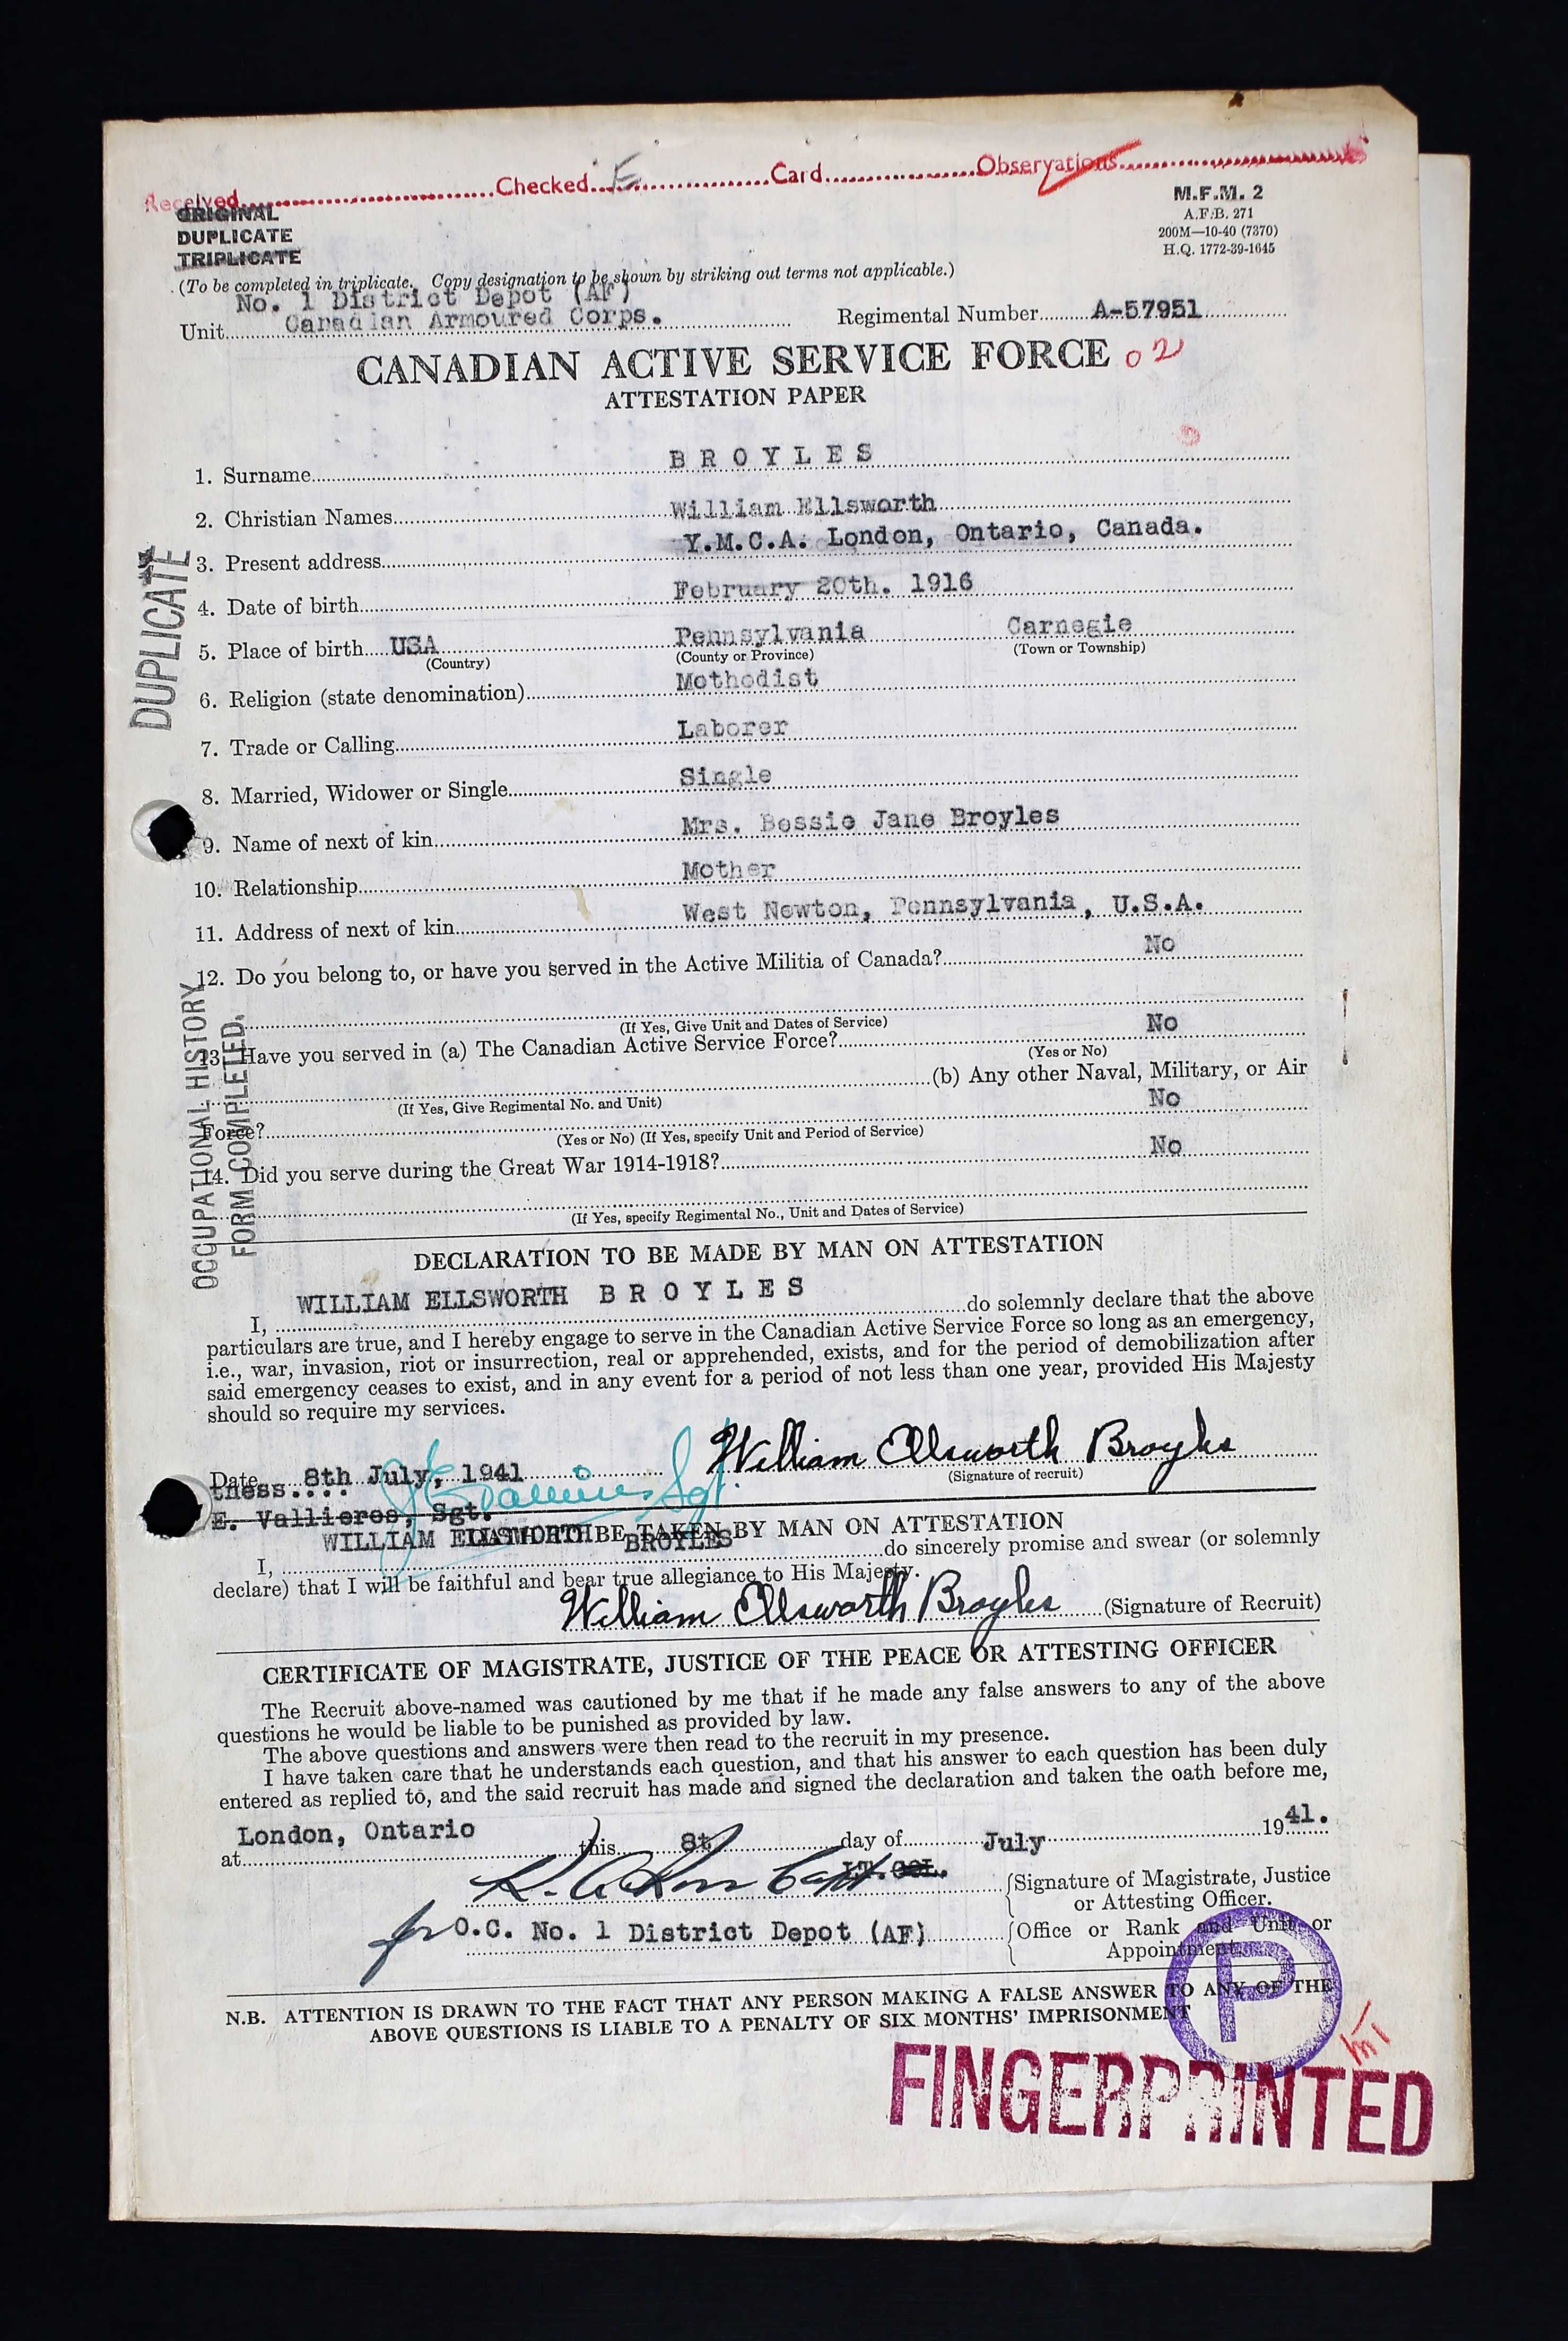 Received....Checked....E....Card....Observations....
ORIGINAL
DUPLICATE
TRIPLICATE
M.F.M. 2
A.F.B. 271
200M—10-40 (7370)
H.Q. 1772-39-1645
(To be completed in triplicate. Copy designation to be shown by striking out terms not applicable.)
No. 1 District Depot (AF)
Unit....Canadian Armoured Corps.
Regimental Number....A-57951
CANADIAN ACTIVE SERVICE FORCE 02
ATTESTATION PAPER
DUPLICATE
1. Surname....B R O Y L E S
2. Christian Names....William Ellsworth
3. Present address....Y.M.C.A. London, Ontario, Canada.
4. Date of birth....February 20th. 1916
5. Place of birth....USA Pennsylvania Carnegie
(Country) (County or Province) (Town or Township)
6. Religion (state denomination)....Methodist
7. Trade or Calling....Laborer
8. Married, Widower or Single....Single
9. Name of next of kin....Mrs. Bessie Jane Broyles
10. Relationship....Mother
11. Address of next of kin....West Newton, Pennsylvania, U.S.A.
12. Do you belong to, or have you served in the Active Militia of Canada?....No
(If Yes, Give Unit and Dates of Service)
13. Have you served in (a) The Canadian Active Service Force?....No
(Yes or No)
....(b) Any other Naval, Military, or Air
(If Yes, Give Regimental No. and Unit)
Force?....No
(Yes or No) (If Yes, specify Unit and Period of Service)
14. Did you serve during the Great War 1914-1918?....No
(If Yes, specify Regimental No., Unit and Dates of Service)
OCCUPATIONAL HISTORY
FORM COMPLETED.
DECLARATION TO BE MADE BY MAN ON ATTESTATION
I, WILLIAM ELLSWORTH B R O Y L E S....do solemnly declare that the above
particulars are true, and I hereby engage to serve in the Canadian Active Service Force so long as an emergency,
i.e., war, invasion, riot or insurrection, real or apprehended, exists, and for the period of demobilization after
said emergency ceases to exist, and in any event for a period of not less than one year, provided His Majesty
should so require my services.
Date....8th July, 1941 William Ellsworth Broyles
(Signature of recruit)
tness....
E. Vallieres, Sgt.
OATH TO BE TAKEN BY MAN ON ATTESTATION
I, WILLIAM ELLSWORTH BROYLES....do sincerely promise and swear (or solemnly
declare) that I will be faithful and bear true allegiance to His Majesty.
William Ellsworth Broyles....(Signature of Recruit)
CERTIFICATE OF MAGISTRATE, JUSTICE OF THE PEACE OR ATTESTING OFFICER
The Recruit above-named was cautioned by me that if he made any false answers to any of the above
questions he would be liable to be punished as provided by law.
The above questions and answers were then read to the recruit in my presence.
I have taken care that he understands each question, and that his answer to each question has been duly
entered as replied to, and the said recruit has made and signed the declaration and taken the oath before me,
at London, Ontario this 8t day of July 1941.
Capt. LT. COL.
Signature of Magistrate, Justice
or Attesting Officer.
for O.C. No. 1 District Depot (AF)
Office or Rank and Unit or
Appointment
N.B. ATTENTION IS DRAWN TO THE FACT THAT ANY PERSON MAKING A FALSE ANSWER TO ANY OF THE
ABOVE QUESTIONS IS LIABLE TO A PENALTY OF SIX MONTHS' IMPRISONMENT
P
FINGERPRINTED